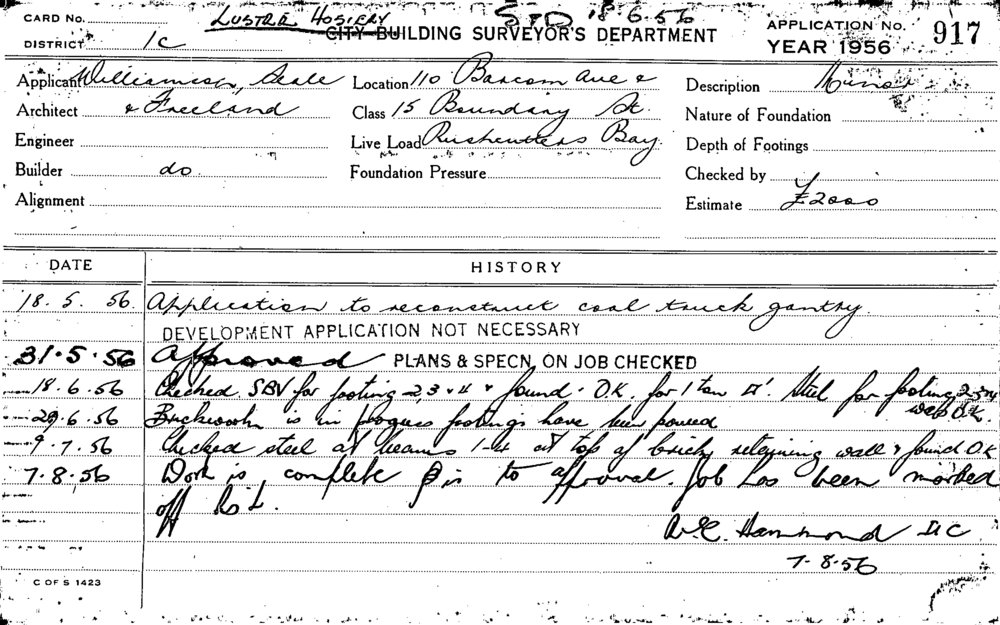 CARD No. LUSTRE HOSIERY STD 18.6.56
CITY BUILDING SURVEYOR'S DEPARTMENT
APPLICATION No. 917
DISTRICT 1C YEAR 1956
Applicant Williamson, Seale Location 110 Barcom Ave & Description Minor
Architect & Freeland Class 15 Boundary St. Nature of Foundation
Engineer Live Load Rushcutters Bay. Depth of Footings
Builder do Foundation Pressure Checked by
Alignment Estimate £2000
DATE HISTORY
18.5.56. Application to reconstruct coal truck gantry
DEVELOPMENT APPLICATION NOT NECESSARY
31.5.56 Approved PLANS & SPECN. ON JOB CHECKED
18.6.56 Checked SBV for footing 2 3 & 4 & found O.K. for 1 ton □'. Steel for footing 2 3 & 4
was O.K.
29.6.56 Brickwork is in progress footings have been poured
9.7.56 Checked steel at beams 1-4 at top of brick retaining wall & found O.K
7.8.56 Work is complete & is to approval. Job has been marked
off
A.C. Hammond
7.8.56
C OF S 1423